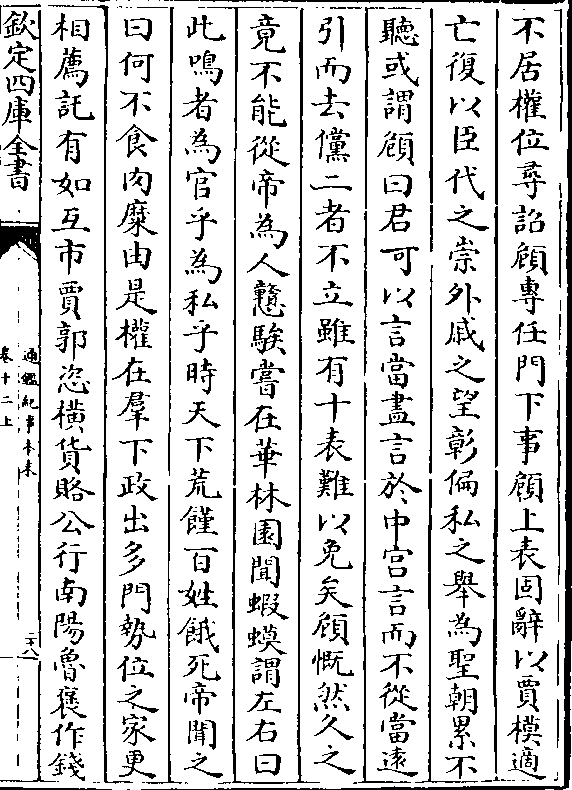 不居權位尋詔頠專任門下事頠上表固辭以賈模適
亡復以臣代之崇外戚之望彰偏私之舉為聖朝累不
聽或謂頠曰君可以言當盡言於中宫言而不從當逺
引而去儻二者不立雖有十表難以免矣頠慨然久之
竟不能從帝為人戇騃嘗在華林園聞蝦蟆謂左右曰
此鳴者為官乎為私乎時天下荒饉百姓餓死帝聞之
曰何不食肉糜由是權在羣下政出多門勢位之家更
相薦託有如互市賈郭恣橫貨賂公行南陽魯褒作錢
欽定四庫全書
通鑑紀事本末
卷十二上
二八